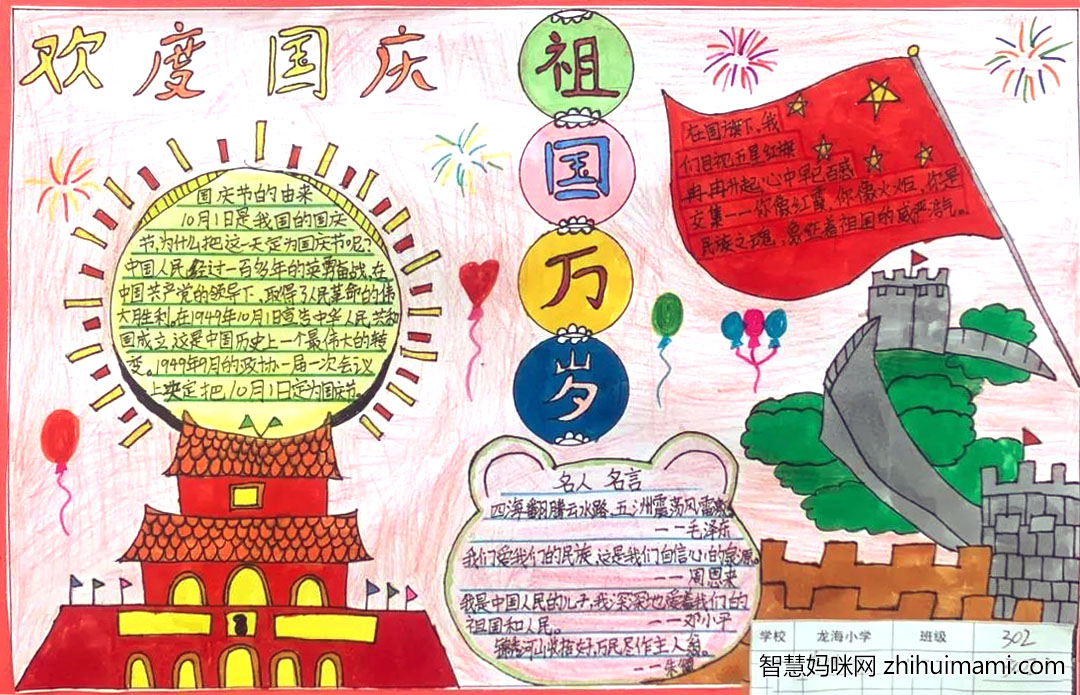 欢度国庆
祖
国
万
岁
在国旗下,我
们目视五星红旗
冉冉升起,心中早已百感
交集——你像红霞,你像火炬,你是
民族之魂,象征着祖国的威严浩气。
国庆节的由来
10月1日是我国的国庆
节,为什么把这一天定为国庆节呢?
中国人民,经过一百多年的英勇奋战,在
中国共产党的领导下,取得了人民革命的伟
大胜利。在1949年10月1日宣告中华人民共和
国成立,这是中国历史上一个最伟大的转
变。1949年9月的政协一届一次会议
上决定把10月1日定为国庆节。
名人名言
四海翻腾云水怒,五洲震荡风雷激。
——毛泽东
我们爱我们的民族,这是我们自信心的泉源。
——周恩来
我是中国人民的儿子,我深深地爱着我们的
祖国和人民。——邓小平
锦绣河山收拾好,万民尽作主人翁。
——朱德
学校 龙海小学 班级 302
智慧妈咪网 zhihuimami.com